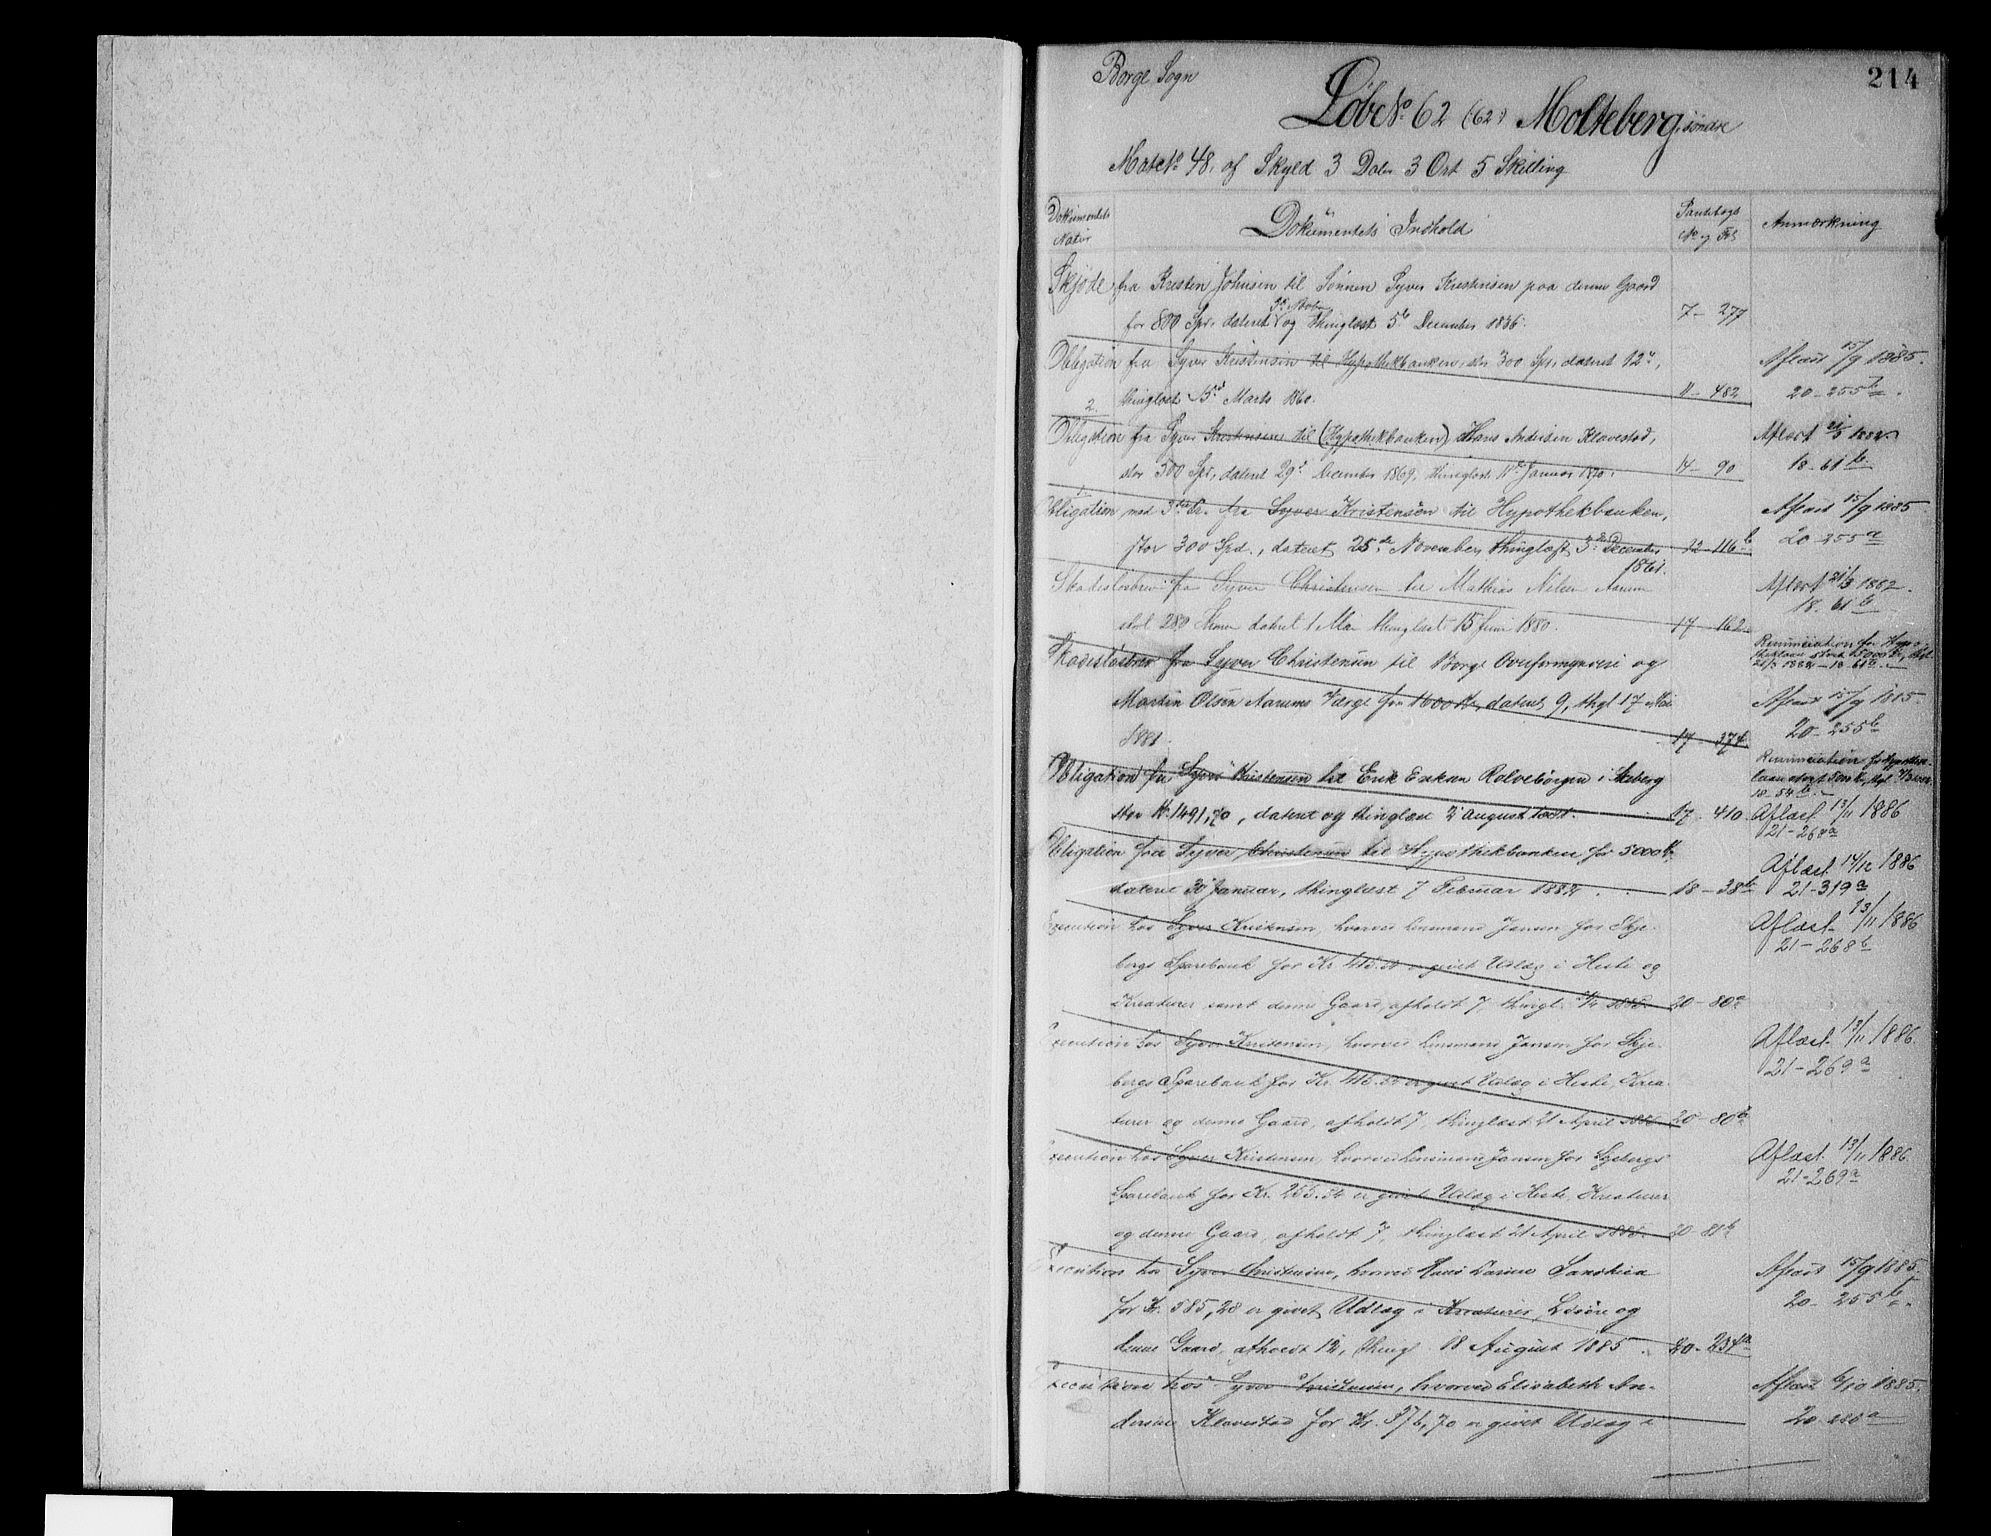 Borge Sogn
214
Løbe No. 62 (62) Molteberg, søndre
Mate No. 48, af Skyld 3 Daler 3 Ort 5 Skilling
Dokumentets Natur
Dokumentets Indhold
Pantebogs No og Fol
Anmærkning
Skjøde fra Kresten Johnsen til Sønnen Syver Kristensen paa denne Gaard
for 800 Spd. dateret og thinglæst 5te December 1836. 7 - 277
Obligation fra Syver Kristensen til Hypothekbanken, stor 300 Spd, dateret 12te, Aflæst 15/9 1885.
thinglæst 15de Marts 1860. 11 - 482 20 - 255
2.
Obligation fra Syver Kristensen til (Hypothekbanken) Hans Andersen Klavestad, Aflæst
stor 300 Spd, dateret 29de December 1869, thinglæst Januar 1870. 14 - 90 18 - 61 b.
1.
Obligation med 3die Pr. fra Syver Kristensen til Hypothekbanken, Aflæst 15/9 1885
stor 300 Spd., dateret 25de November, thinglæst 3die December 12 - 116 b 20 - 255 a
1861.
Skadesløsbrev fra Syver Christensen til Mathias Nilsen Aarum Aflæst 21/3 1882.
stort 280 Kroner dateret 1 Mai thinglæst 15 Juni 1880. 17 - 162 18 - 61 b
Skadesløsbrev fra Syver Christensen til Borge Overformynderi og
Martin Olsen Aarums Værge for 1600 Kr, dateret 9, thgl 17 Mai Aflæst 15/9 1885.
1881. 17 - 374. 20 - 255 b
Obligation fra Syver Kristensen til Erik Eriksen Rolvsborgen i Skeberg
stor Kr. 1491,70, dateret og thinglæst 2 August 1881. 17 - 410 Aflæst 13/11 1886
21 - 268 a
Obligation fra Syver Christensen til Hypothekbanken for 5000 Kr. Aflæst 14/12 1886
dateret 30 Januar, thinglæst 7 Februar 1882. 18 - 38 b 21 - 319 a
Execution hos Syver Kristensen, hvorved Lensmand Jansen for Skje- Aflæst 13/11 1886
bergs Sparebank for Kr. er givet Udlæg i Heste og 21 - 268 b
Kreaturer samt denne Gaard, afholdt 7, thingl. 20 - 80 a
Execution hos Syver Kristensen, hvorved Lensmand Jansen for Skje- Aflæst 13/11 1886.
bergs Sparebank for Kr. er givet Udlæg i Heste, Krea- 21 - 269 a
turer og denne Gaard, afholdt 7, thinglæst 21 April 20 - 80 b
Execution hos Syver Kristensen, hvorved Lensmand Jansen for Skjebergs Aflæst 13/11 1886
Sparebank for Kr. er givet Udlæg i Heste, Kreaturer 21 - 269 a
og denne Gaard, afholdt 7, thinglæst 21 April 20 - 81 b
Execution hos Syver Kristensen, hvorved Hans Aflæst 15/9 1885
for Kr. 585,28 er givet Udlæg i Kreaturer, Løsøre og 20 - 255 b.
denne Gaard, afholdt 12, thingl 18 August 1885. 20 - 234 a
Execution hos Syver Kristensen, hvorved Elisabeth An- Aflæst 6/10 1885.
dersen Klavestad for Kr. 376,70 er givet Udlæg i